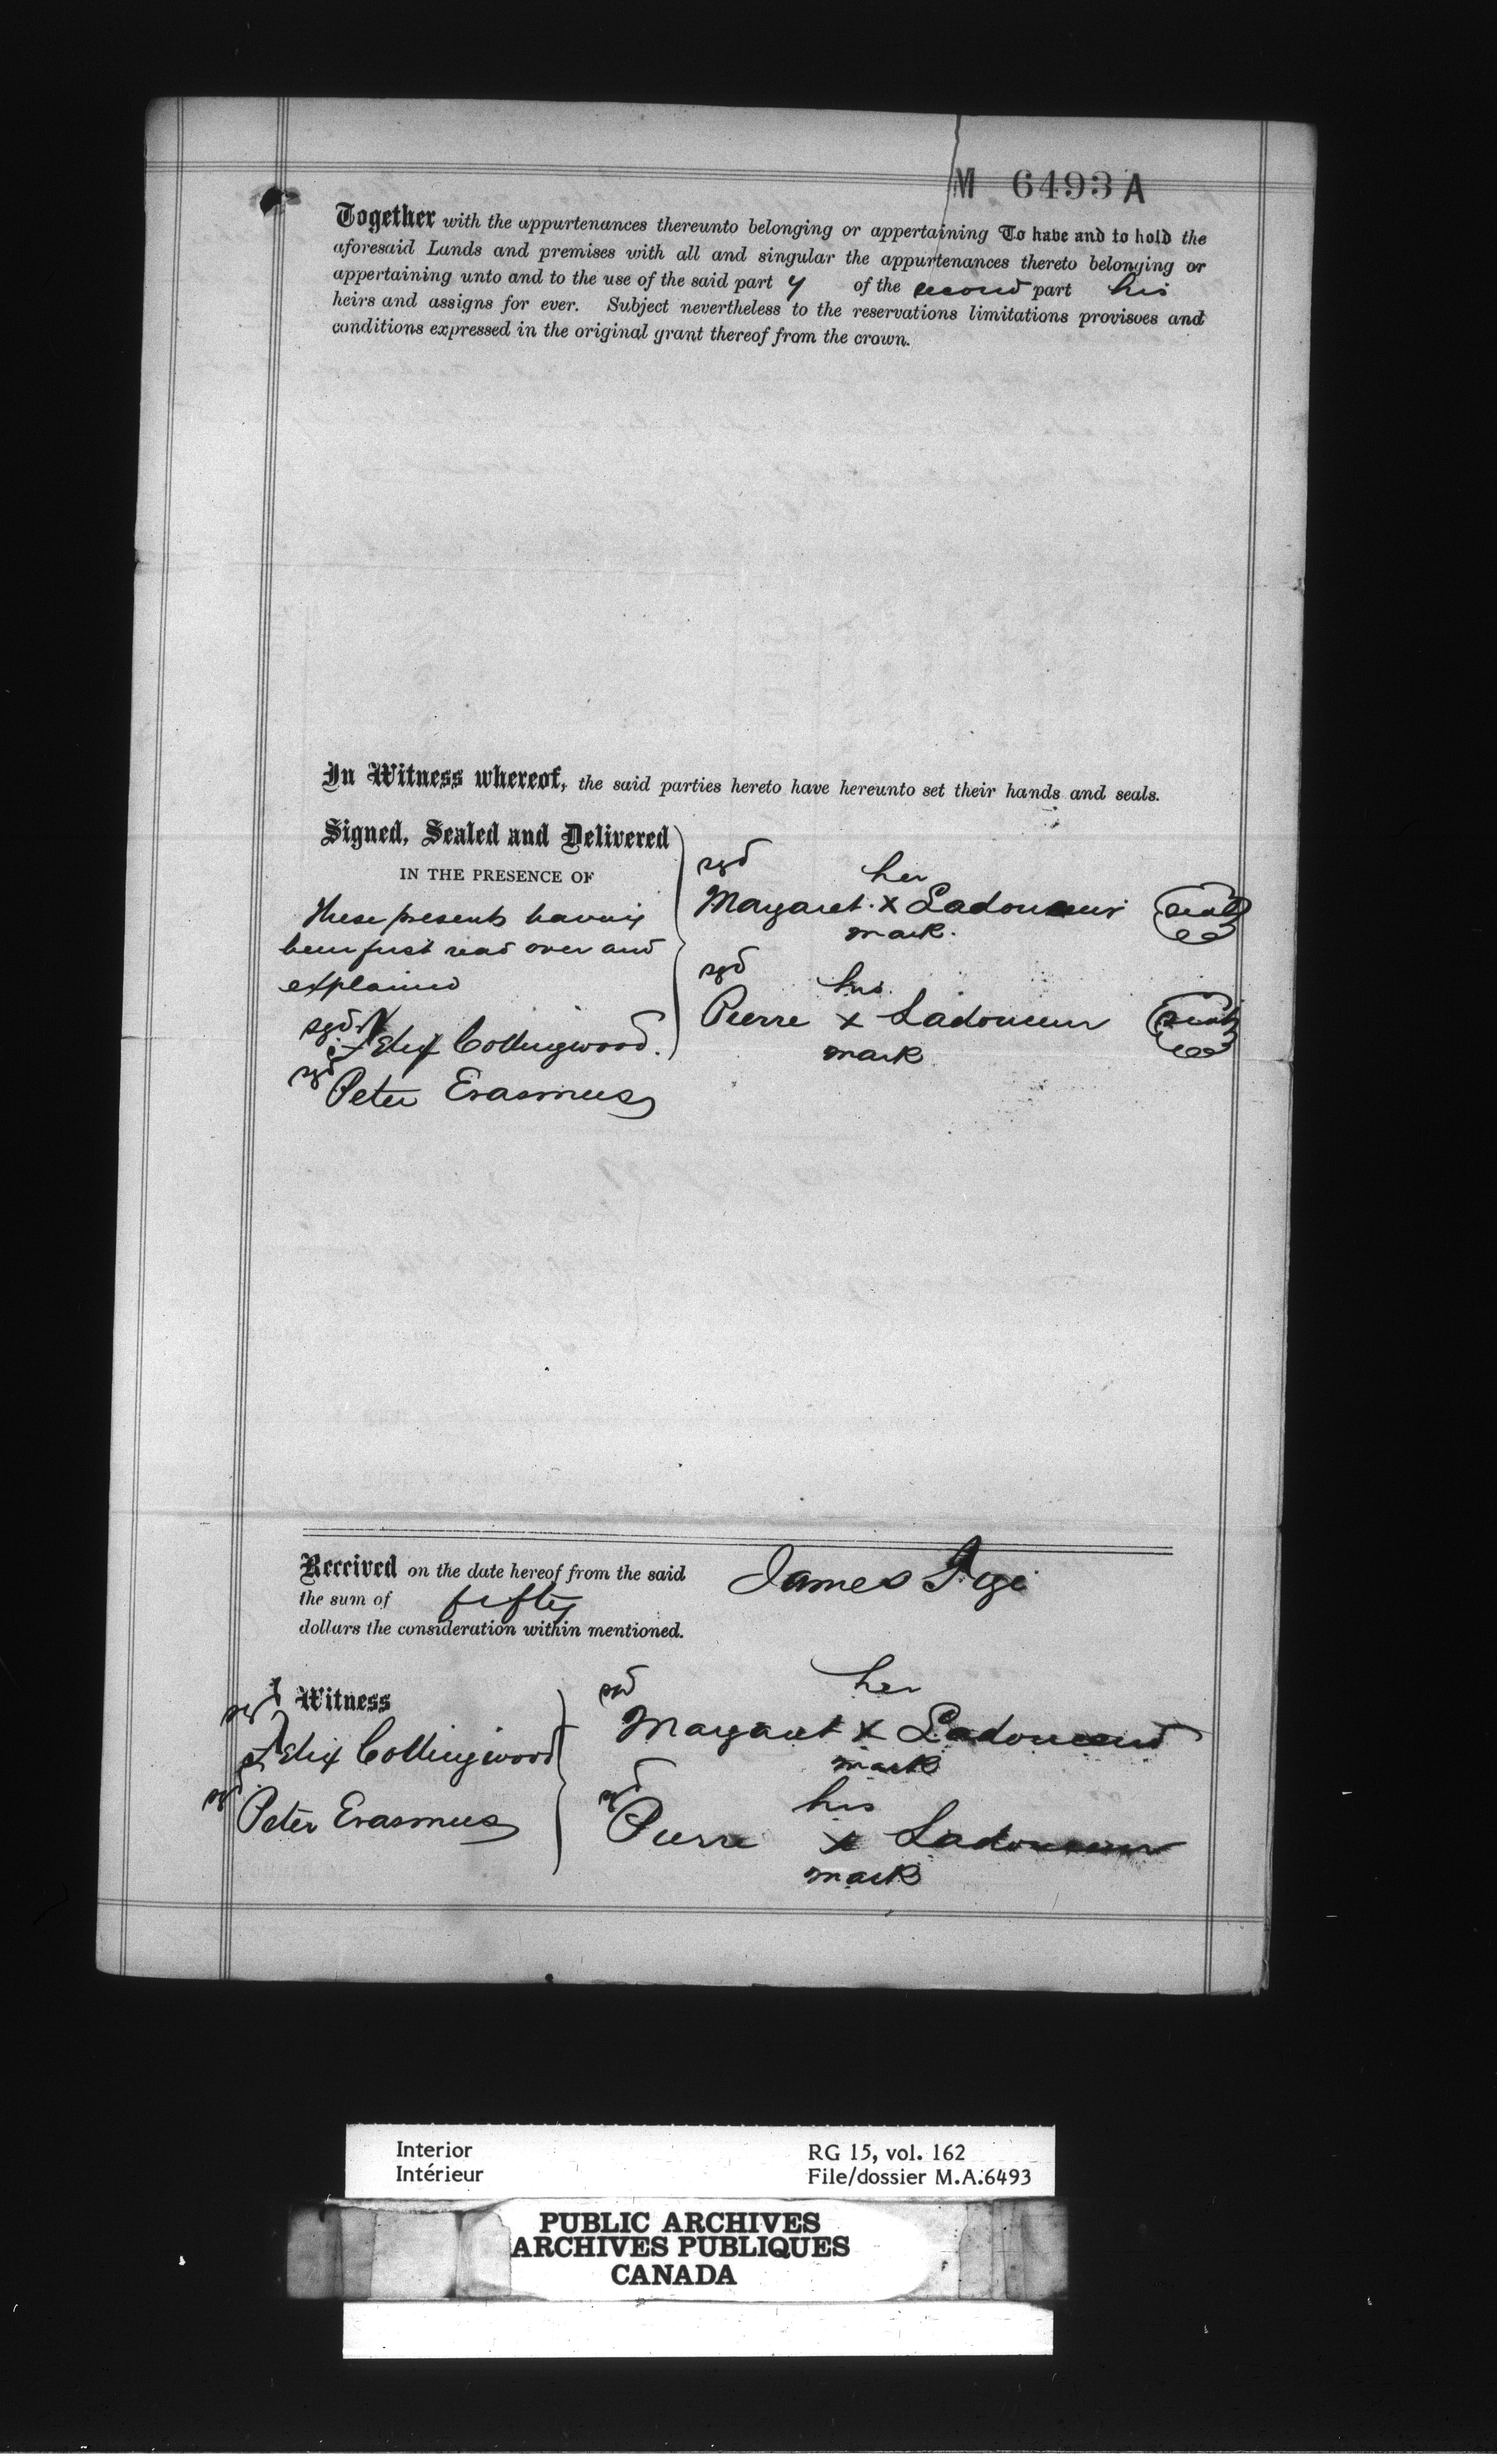 M 6493 A
Together with the appurtenances thereunto belonging or appertaining To have and to hold the
aforesaid Lands and premises with all and singular the appurtenances thereto belonging or
appertaining unto and to the use of the said part y of the second part his
heirs and assigns for ever. Subject nevertheless to the reservations limitations provisoes and
conditions expressed in the original grant thereof from the crown.
In Witness whereof, the said parties hereto have hereunto set their hands and seals.
Signed, Sealed and Delivered
IN THE PRESENCE OF
These presents having
been first read over and
explained
sgd Felix Collingwood.
sgd Peter Erasmus
sgd her
Margaret x Ladouceur seal
mark.
sgd his
Pierre x Ladouceur seal
mark
Received on the date hereof from the said James
the sum of fifty
dollars the consideration within mentioned.
Witness
sgd Felix Collingwood
sgd Peter Erasmus
sgd her
Margaret x Ladouceur
mark
sgd his
Pierre x Ladouceur
mark
Interior RG 15, vol. 162
Intérieur File/dossier M.A.6493
PUBLIC ARCHIVES
ARCHIVES PUBLIQUES
CANADA